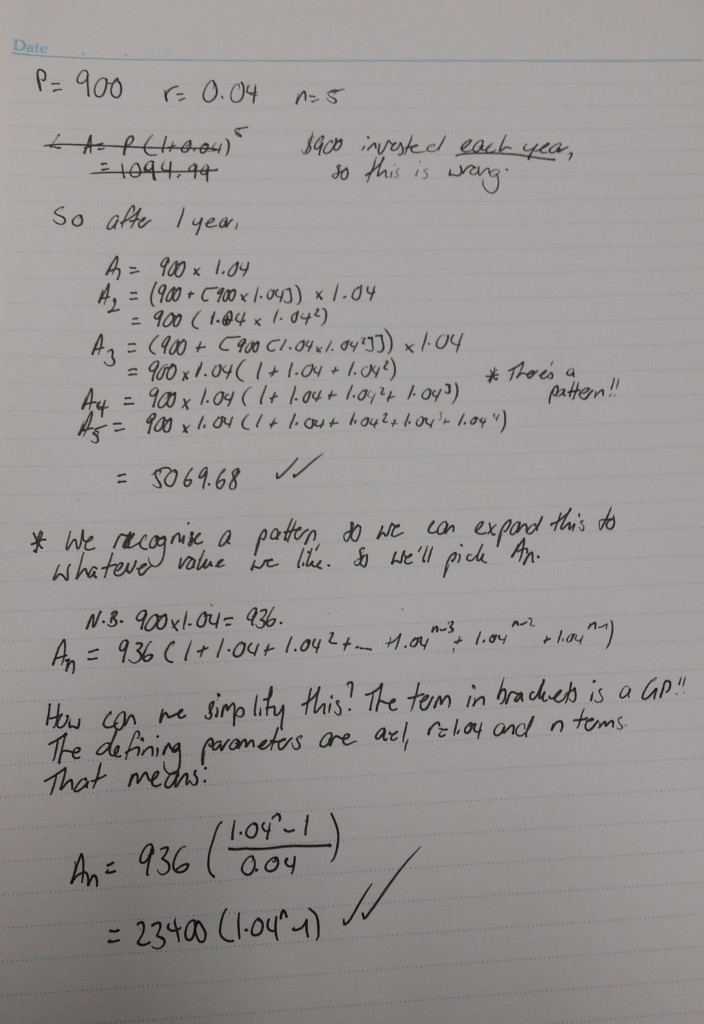 Date
P= 900 r= 0.04 n=5
∠ A= P(1+0.04)^5 $900 invested each year,
= 1094.99 so this is wrong.
So after 1 year,
A= 900 x 1.04
A_2 = (900 + [900 x 1.04]) x 1.04
= 900 (1.04 x 1.04^2)
A_3 = (900 + [900 [1.04x1.04^2]]) x 1.04
= 900 x 1.04 (1 + 1.04 + 1.04^2)
* There's a
A_4 = 900 x 1.04 (1+ 1.04+ 1.04^2+ 1.04^3) pattern!!
A_5 = 900 x 1.04 (1 + 1.04 + 1.04^2+1.04^3+ 1.04^4)
= 5069.68 ✓✓
* We recognise a pattern, so we can expand this to
whatever value we like. So we'll pick An.
N.B. 900x1.04= 936.
A_n = 936 (1+1.04+ 1.04^2+... +1.04^n-3 + 1.04^n-2 +1.04^n-1)
How can we simplify this? The term in brackets is a GP!!
The defining parameters are a=1, r=1.04 and n terms.
That means:
A_n = 936 ((1.04^n-1)/0.04)
= 23400 (1.04^n-1) ✓✓